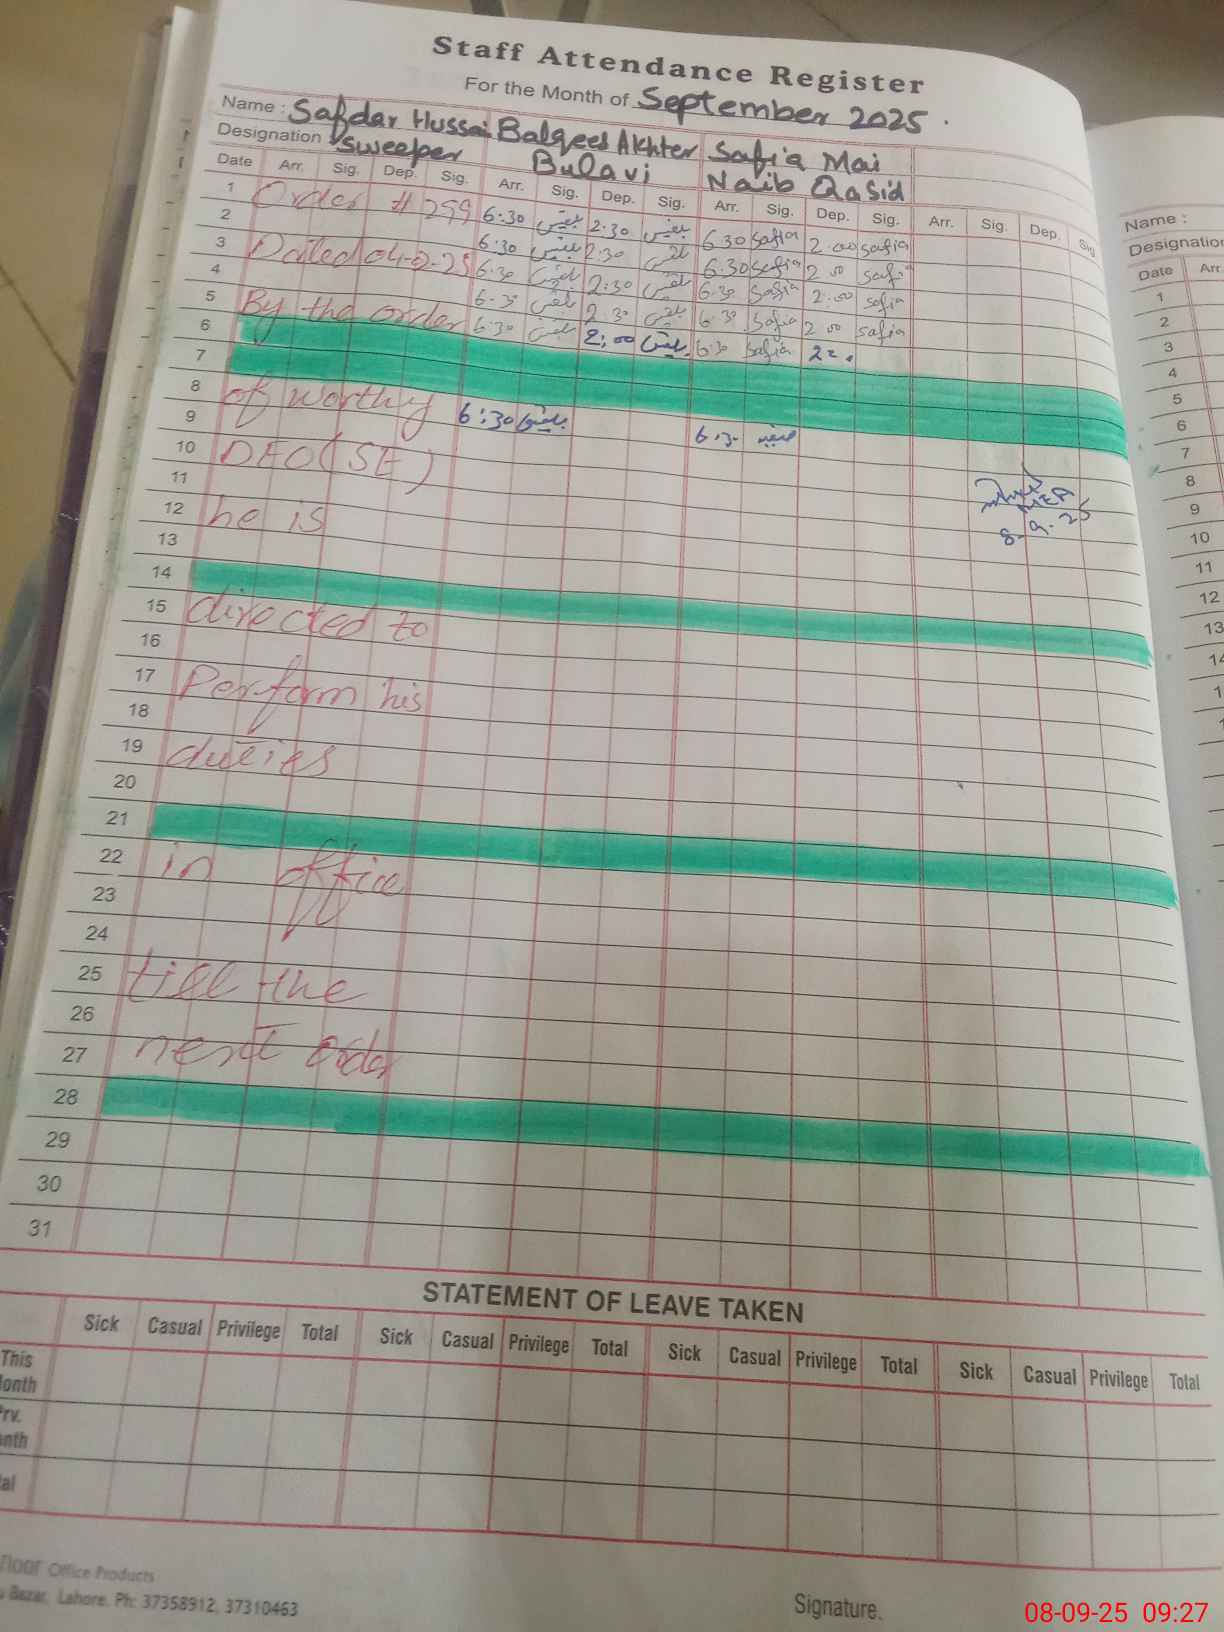 Staff Attendance Register
For the Month of September 2025.
Name : Safdar Hussai Balqees Akhter Safia Mai
Designation : Sweeper Bulavi Naib Qasid
Date Arr. Sig. Dep. Sig. Arr. Sig. Dep. Sig. Arr. Sig. Dep. Sig. Arr. Sig. Dep. Sig
1 Order # 299 6:30 بلقیس 2:30 بلقیس 6 30 Safia 2:00 safia
2 6:30 بلقیس 2:30 بلقیس 6:30 Safia 2 00
3 Dated 6:30 بلقیس 2:30 بلقیس 6:30 Safia 2:00 safia
4 6:30 بلقیس 2:30 بلقیس 6:30 Safia 2 00 safia
5 By the order 6:30 بلقیس 2:00 بلقیس 6:30 Safia
6
7
8 of worthy 6:30 بلقیس 6:30 صفیہ
9
10 DEO(SE)
11
12 he is
8-9-25
13
14
15 directed to
16
17 Perform his
18
19 duties
20
21
22 in office
23
24
25 till the
26
27 next order
28
29
30
31
STATEMENT OF LEAVE TAKEN
Sick Casual Privilege Total Sick Casual Privilege Total Sick Casual Privilege Total Sick Casual Privilege Total
This
onth
rv.
nth
al
Office Products
Bazar, Lahore. Ph: 37358912, 37310463
Signature.
Name :
Designation
Date Arr
1
2
3
4
5
6
7
8
9
10
11
12
13
08-09-25 09:27